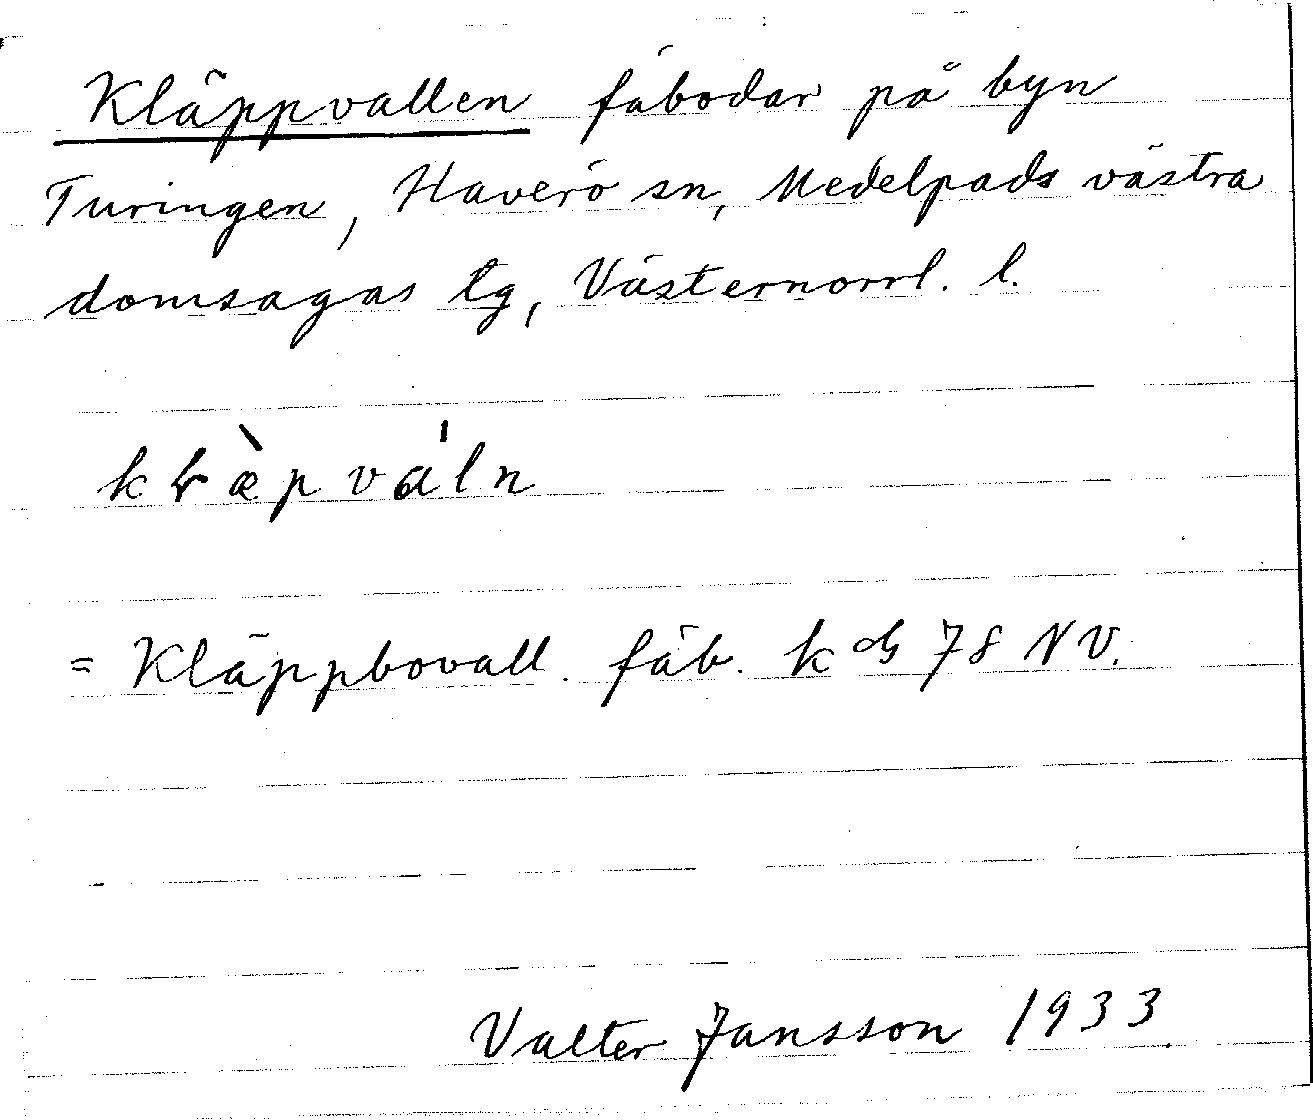 Kläppvallen fäbodar på byn
Turingen, Haverö sn, Medelpads västra
domsagas tg, Västernorrl. l.
= Kläppbovall. fäb. k bl 78 NV.
Valter Jansson 1933